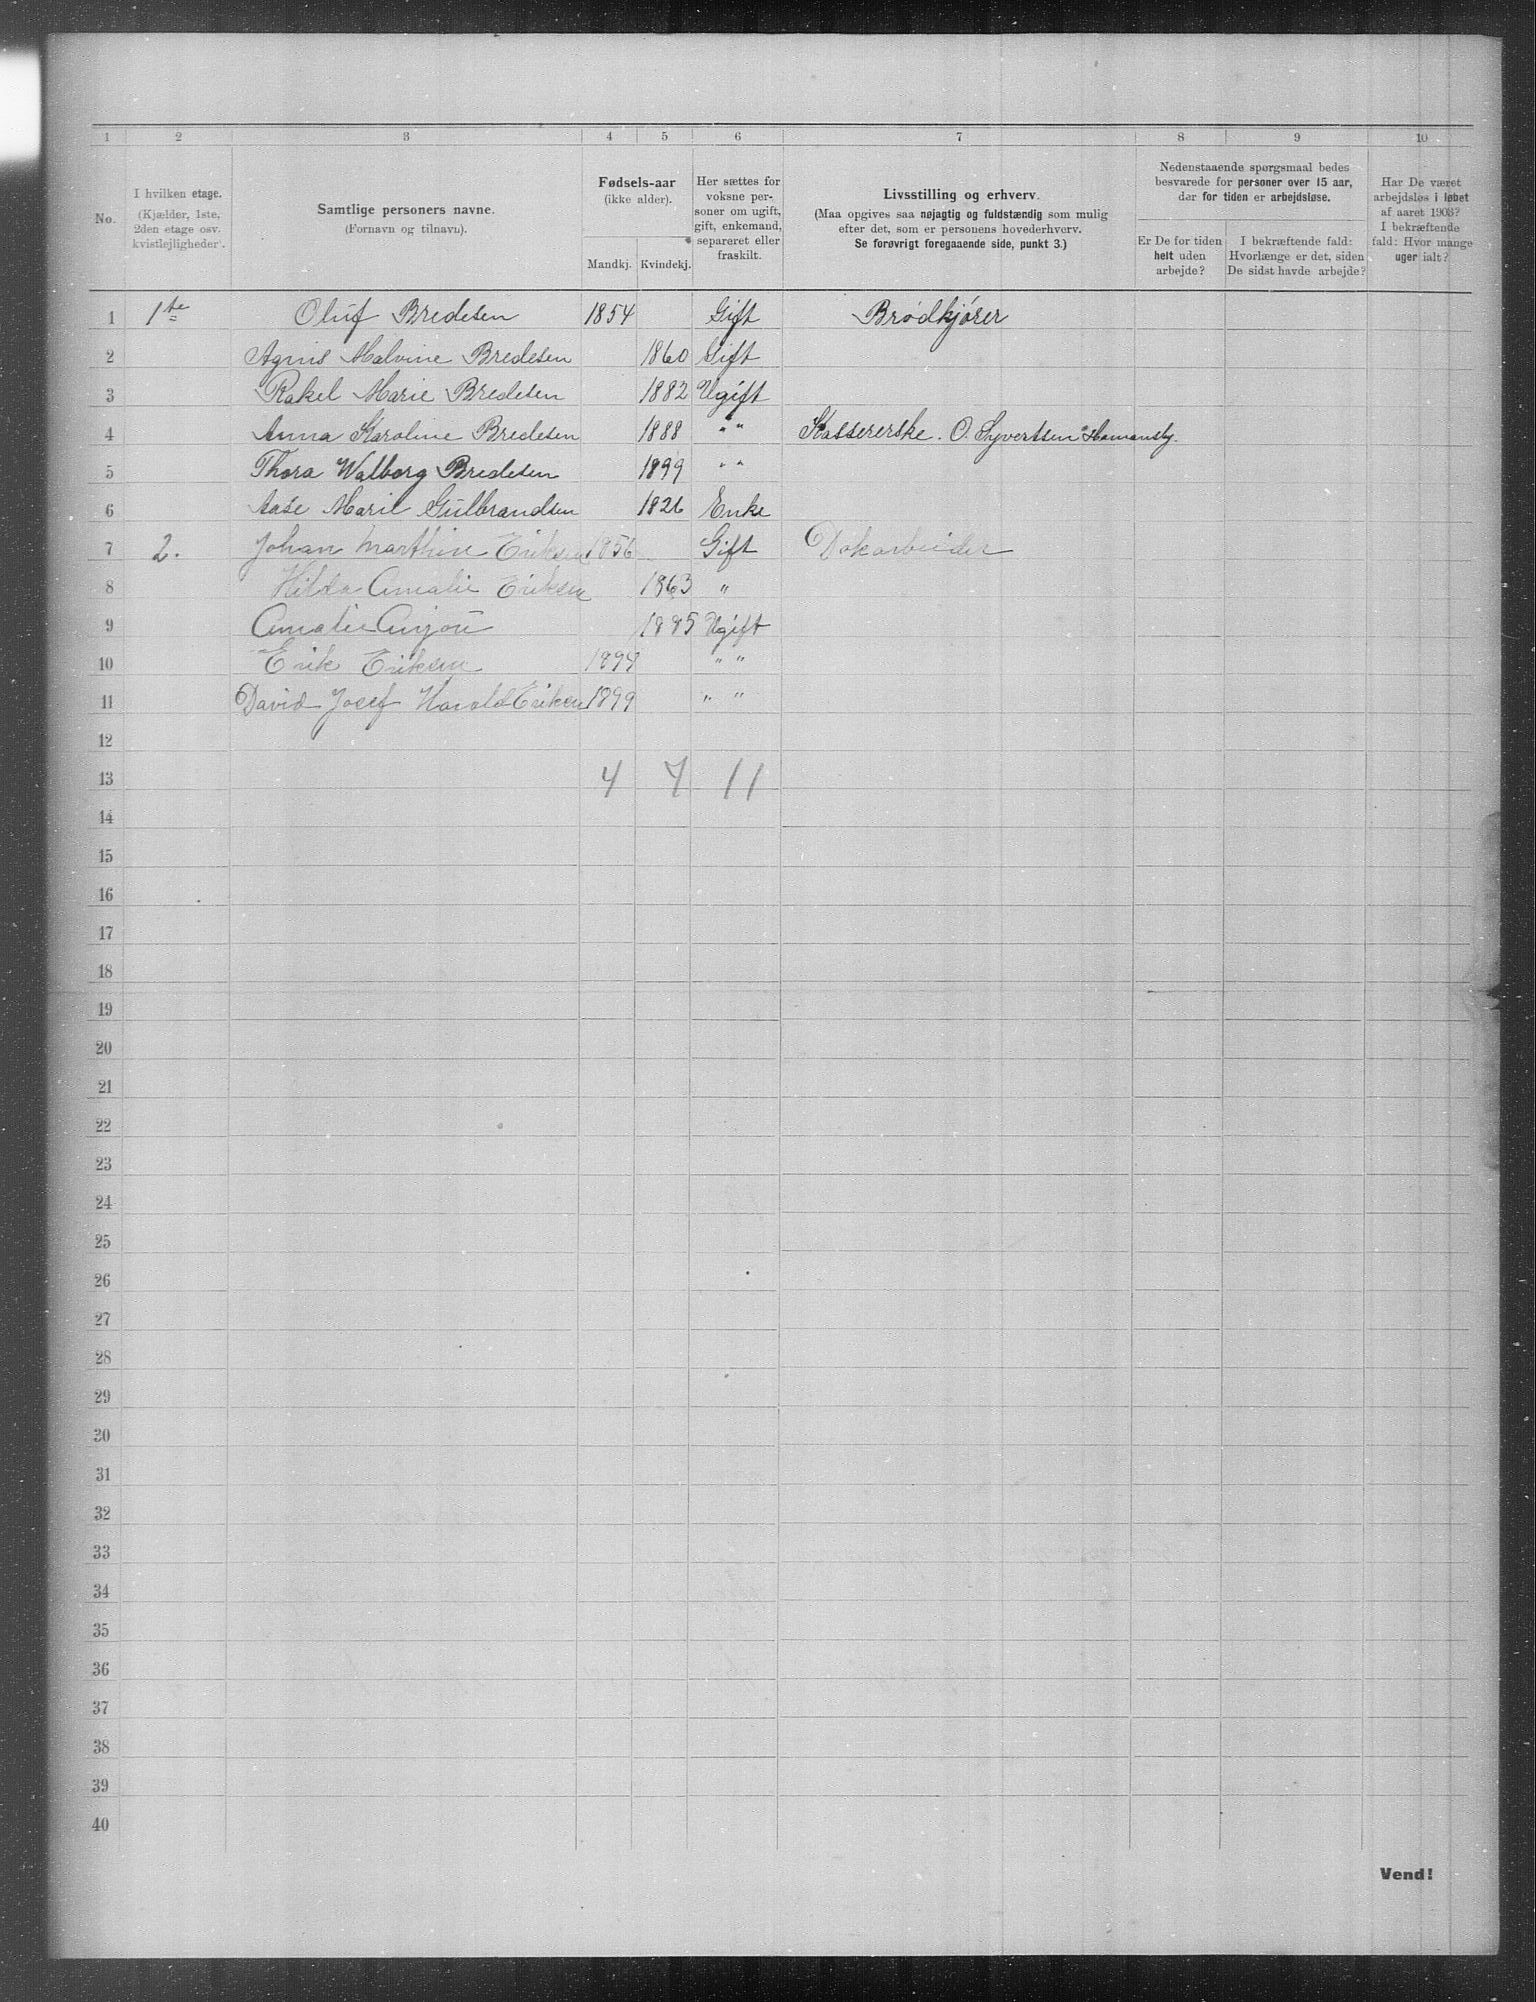 1 2 3 4 5 6 7 8 9 10
No.
I hvilken etage.
(Kjælder, 1ste,
2den etage osv.
kvistlejligheder).
Samtlige personers navne.
(Fornavn og tilnavn).
Fødsels-aar
(ikke alder).
Mandkj. Kvindekj.
Her sættes for
voksne per-
soner om ugift,
gift, enkemand,
separeret eller
fraskilt.
Livsstilling og erhverv.
(Maa opgives saa nøjagtig og fuldstændig som mulig
efter det, som er personens hovederhverv.
Se forøvrigt foregaaende side, punkt 3.)
Nedenstaaende spørgsmaal bedes
besvarede for personer over 15 aar,
der for tiden er arbejdsløse.
Er De for tiden
helt uden
arbejde?
I bekræftende fald:
Hvorlænge er det, siden
De sidst havde arbejde?
Har De været
arbejdsløs i løbet
af aaret 1903?
I bekræftende
fald: Hvor mange
uger ialt?
1 1te Oluf Bredesen 1854 Gift Brødkjører
2 Agnis Malvine Bredesen 1860 Gift
3 Rakel Marie Bredesen 1882 Ugift
4 Anna Karoline Bredesen 1888 " " Kassererske. O. Syvertsen Homansby.
5 Thora Walborg Bredesen 1899 " "
6 Aase Marie Gulbrandsen 1826 Enke
7 2. Johan Marthin Eriksen 1856 Gift Dokarbeider
8 Hilda Amalie Eriksen 1863 "
9 Amalie Anjou 1885 Ugift
10 Erik Eriksen 1894 " "
11 David Josef Harald Eriksen 1899 " "
12
13 4 7 11
14
15
16
17
18
19
20
21
22
23
24
25
26
27
28
29
30
31
32
33
34
35
36
37
38
39
40
Vend!